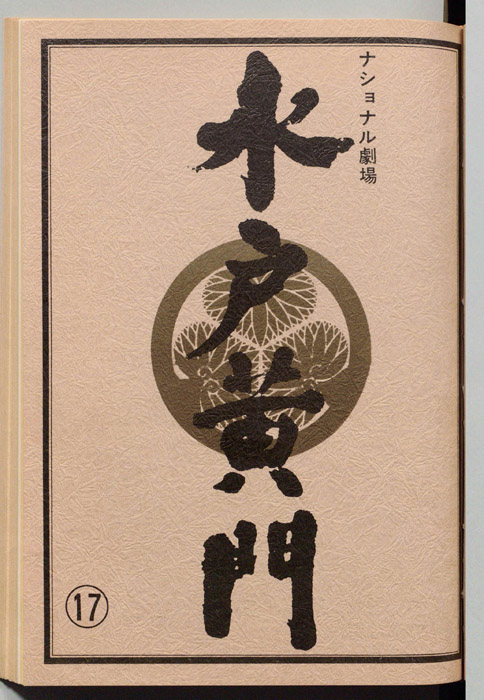 ナショナル劇場
水戸黄門
17